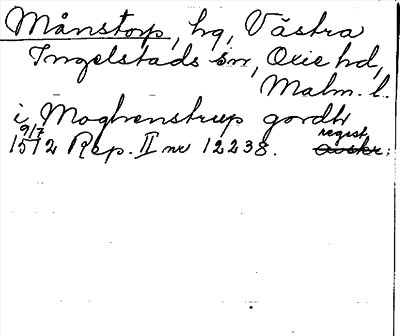 Månstorp, hg, Västra
Ingelstads sn, Oxie hd,
Malm. l.
i Moghenstrup gordh
9/7 regest.
1512 Rep. II nr 12238. avskr.;